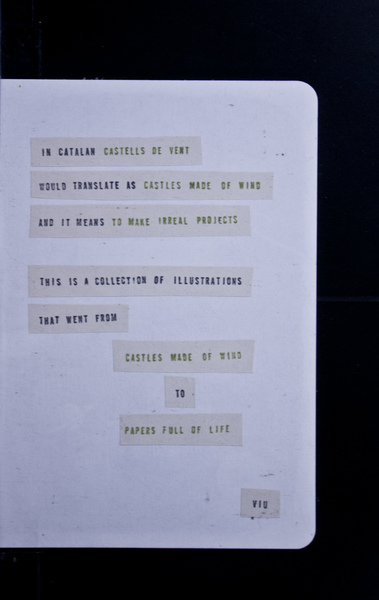 IN CATALAN CASTELLS DE VENT
WOULD TRANSLATE AS CASTLES MADE OF WIND
AND IT MEANS TO MAKE IRREAL PROJECTS
THIS IS A COLLECTION OF ILLUSTRATIONS
THAT WENT FROM
CASTLES MADE OF WIND
TO
PAPERS FULL OF LIFE
VIU